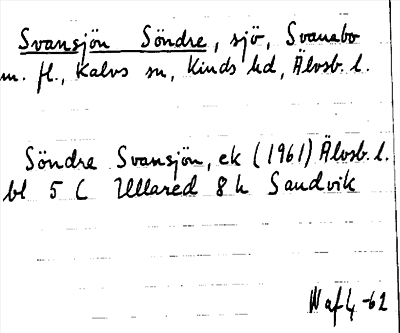 Svansjön Söndre, sjö, Svanabo
m. fl., Kalvs sn, Kinds hd, Älvsb. l.
Söndre Svansjön, ek (1961) Älvsb. l.
bl 5 C Ullared 8 h Sandvik
-62